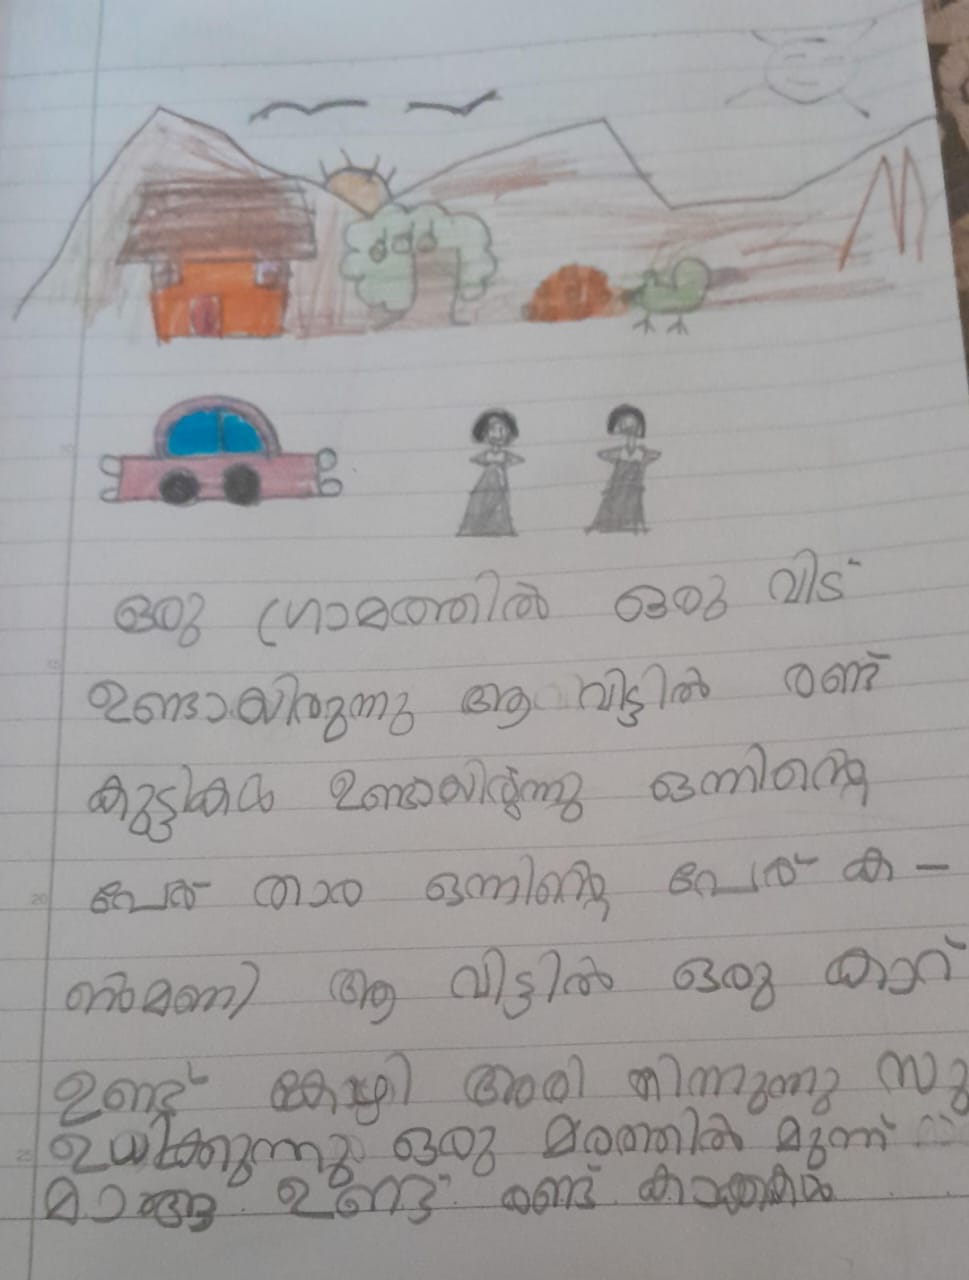 ഒരു ഗ്രാമത്തിൽ ഒരു വിട്
ഉണ്ടായിരുന്നു ആ വിട്ടിൽ രണ്ട്
കുട്ടികൾ ഉണ്ടായിരുന്നു ഒന്നിന്റെ
പേര് താര ഒന്നിന്റെ പേര് ക -
ൺമണി ആ വിട്ടിൽ ഒരു കാറ്
ഉണ്ട് കോഴി അരി തിന്നുന്നു സു
ഉധിക്കുന്നു ഒരു മരത്തിൽ മുന്ന്
മാങ്ങ ഉണ്ട് രണ്ട്
20